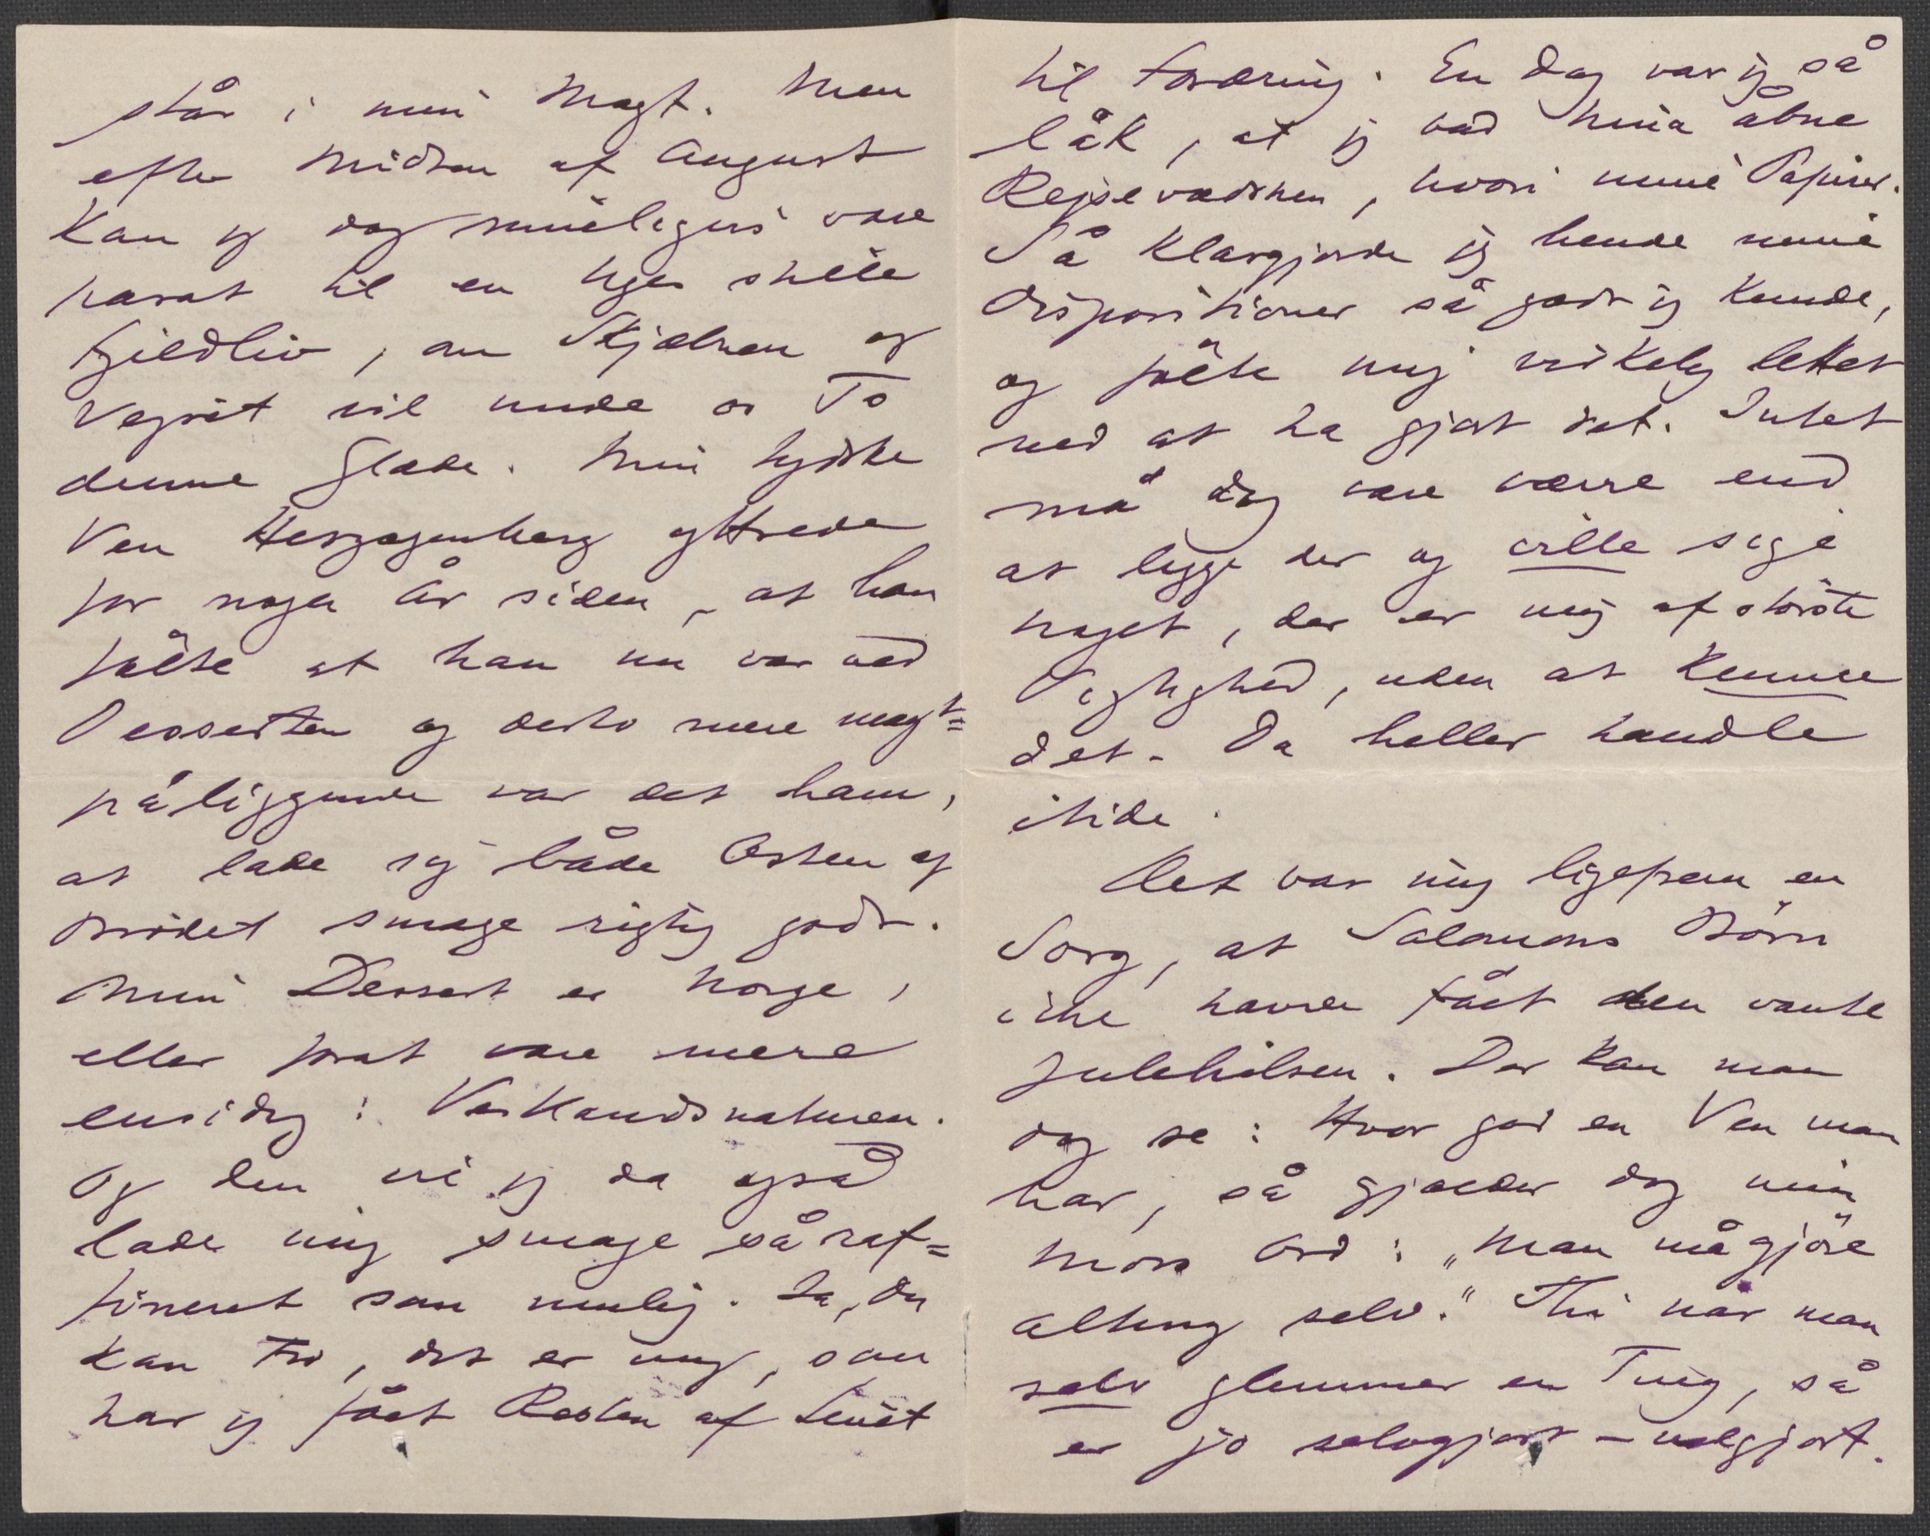 står i min Magt. Men
efter Midten af August
kan jeg dog muligens være
parat til en Uges stille
Fjeldliv, om Skjæbnen og
Vejret vil unde os To
denne Glæde. Min tydske
Ven Herzogenberg yttrede
for nogen År siden, at han
følte at han nu var ved
Desserten og desto mere magt=
påliggende var det ham,
at lade sig både Osten og
Brødet smage rigtig godt.
Min Dessert er Norge,
eller for at være mere
ensidig: Vestlandsnaturen.
Og den vil jeg da også
lade mig smage så raf=
fineret som mulig. Ja, Du
kan tro, det er mig, som
har jeg fået Resten af Livet
til Foræring. En Dag var jeg så
låk, at jeg bad Nina åbne
Rejsevædsken, hvori mine Papirer.
Så klargjorde jeg hende mine
Dispositioner så godt jeg kunde,
og følte mig virkelig lettet
ved at ha gjort det. Intet
må dog være værre end
at ligge der og ville sige
noget, der er mig af største
Vigtighed, uden at kunne
det. Da heller handle
itide.
Det var mig ligefrem en
Sorg, at Salomons Børn
ikke havde fået den vante
Julehilsen. Der kan man
dog se: Hvor god en Ven man
har, så gjælder dog min
Mors Ord: „Man må gjöre
alting selv." Thi når man
selv glemmer en Ting, så
er jo selvgjort – velgjort.